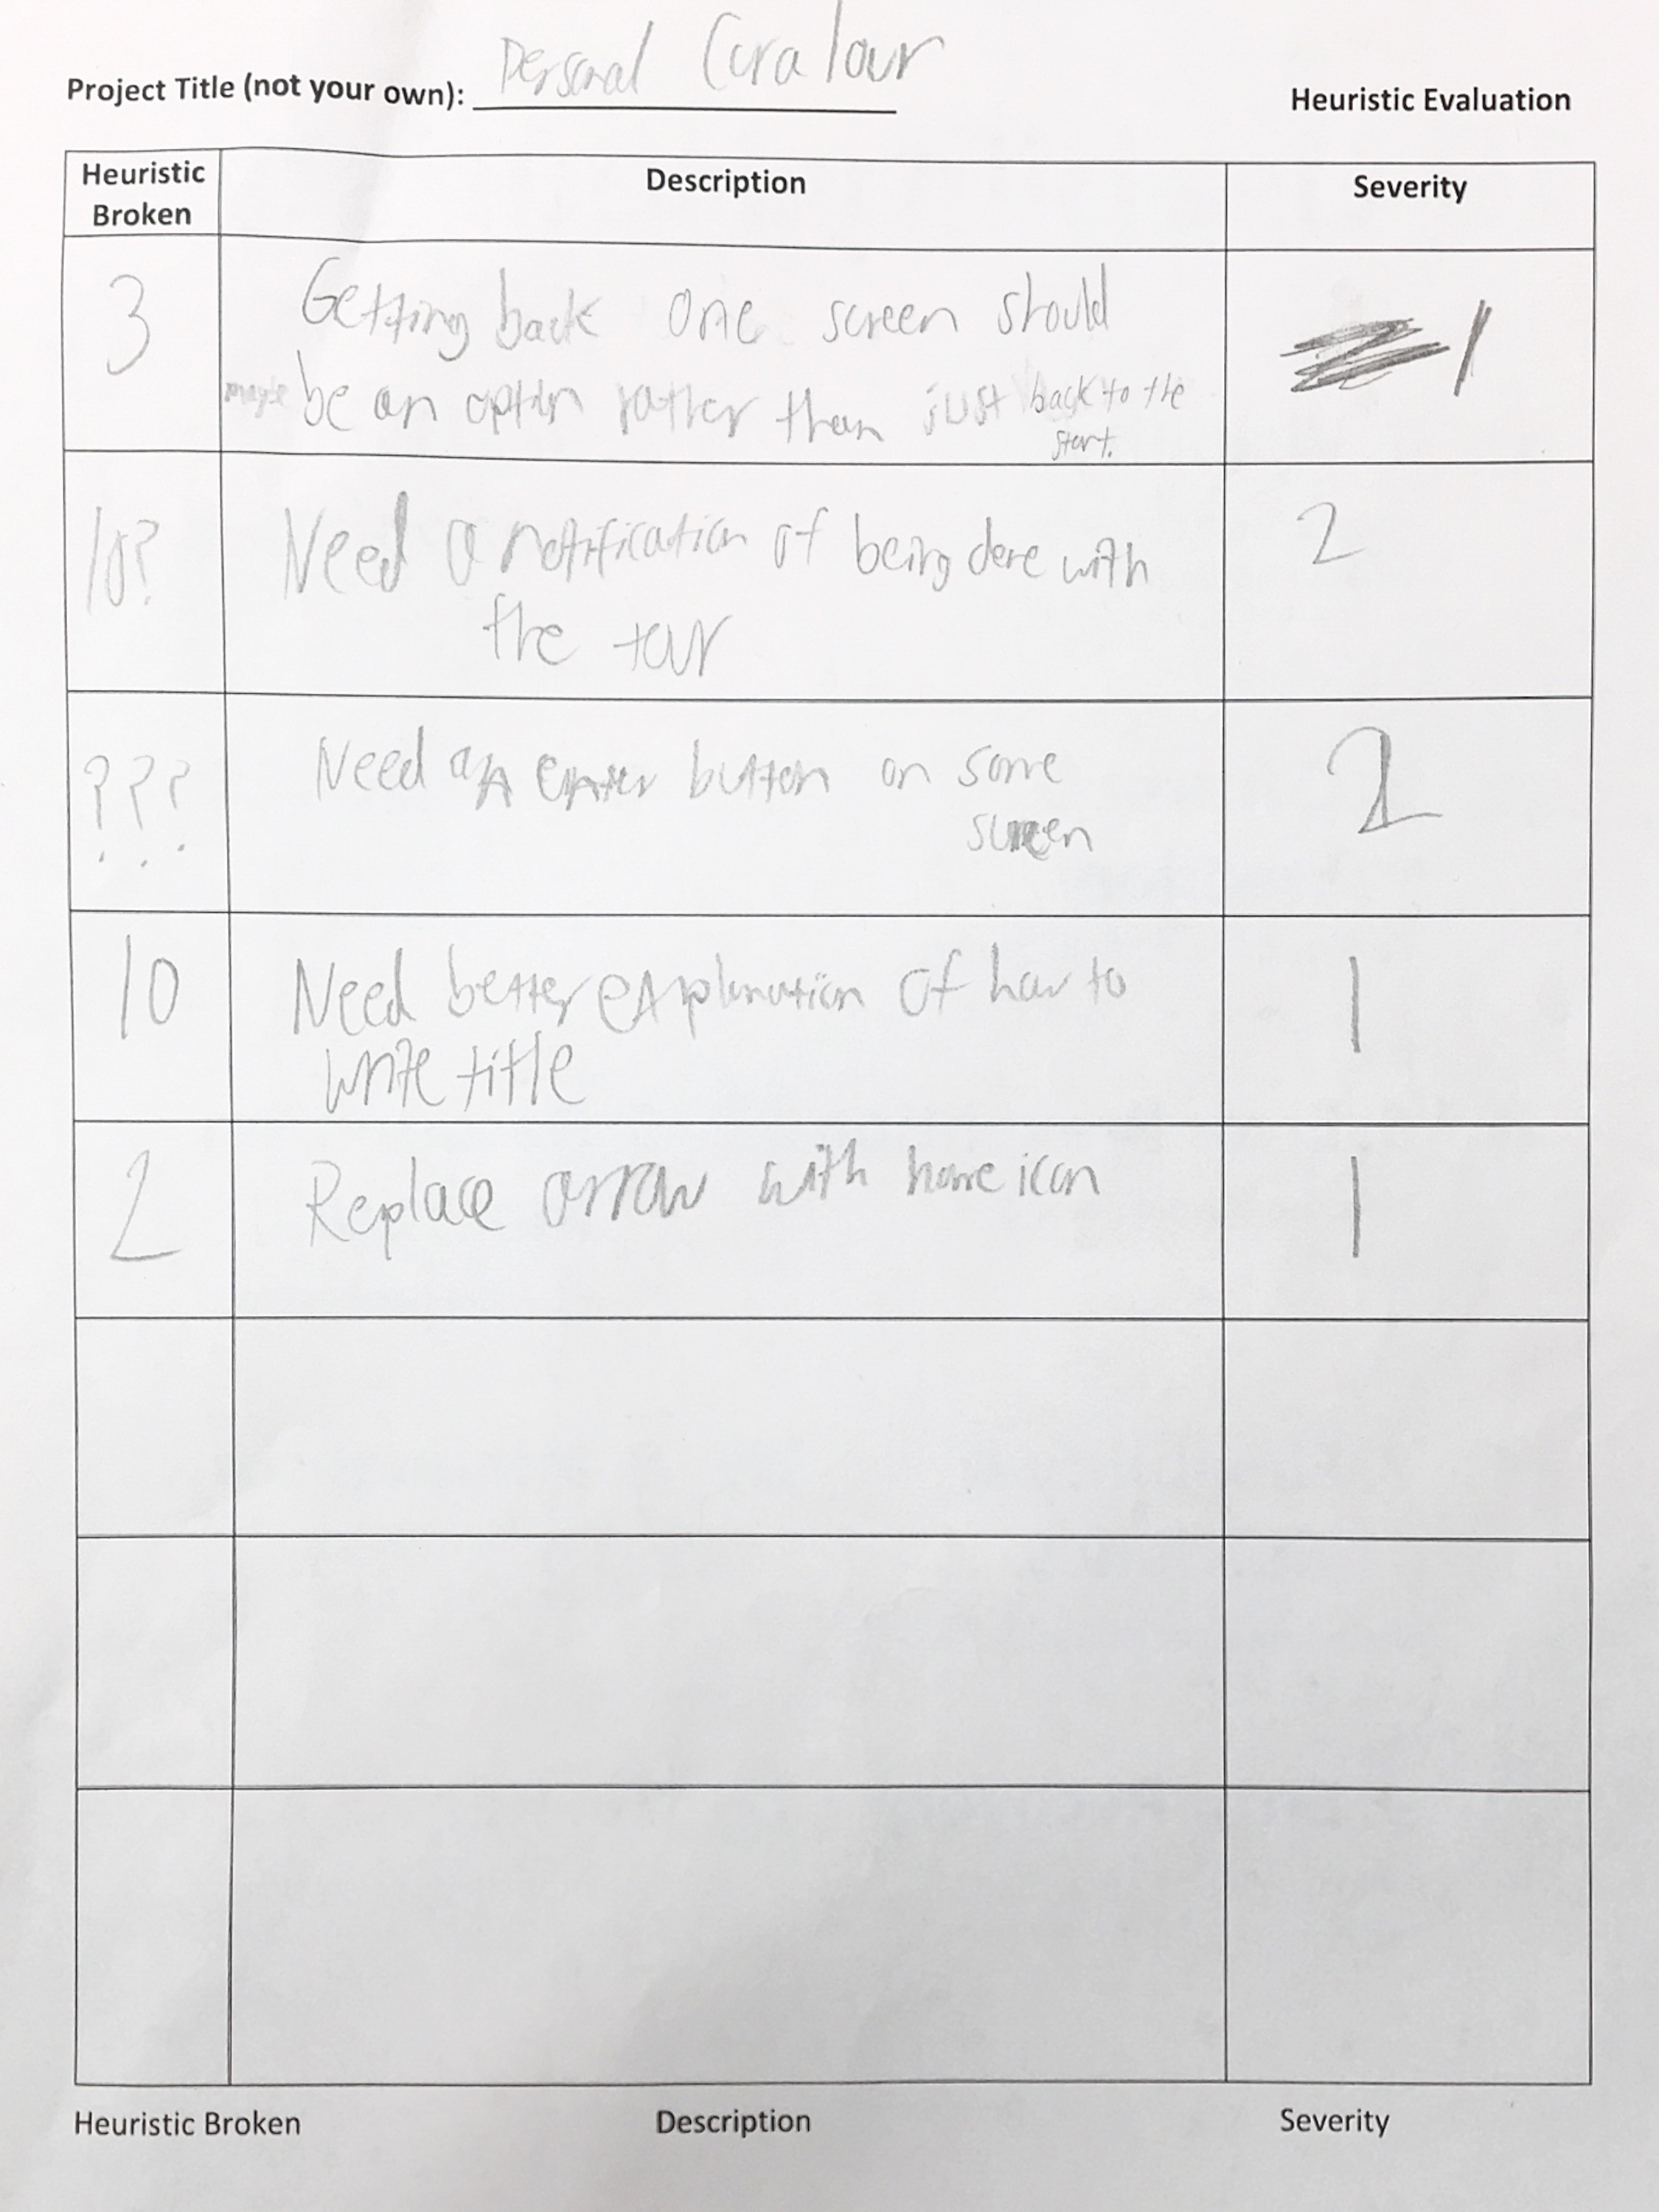 Project Title (not your own): Personal CuraTour
Heuristic Evaluation
Heuristic Broken
Description
Severity
3
Getting back one screen should
maybe be an option rather than just back to the
start.
1
10?
Need a notification of being done with
the tour
2
???
Need an enter button on some
screen
2
10
Need better explanation of how to
write title
1
2
Replace arrow with home icon
1
Heuristic Broken
Description
Severity